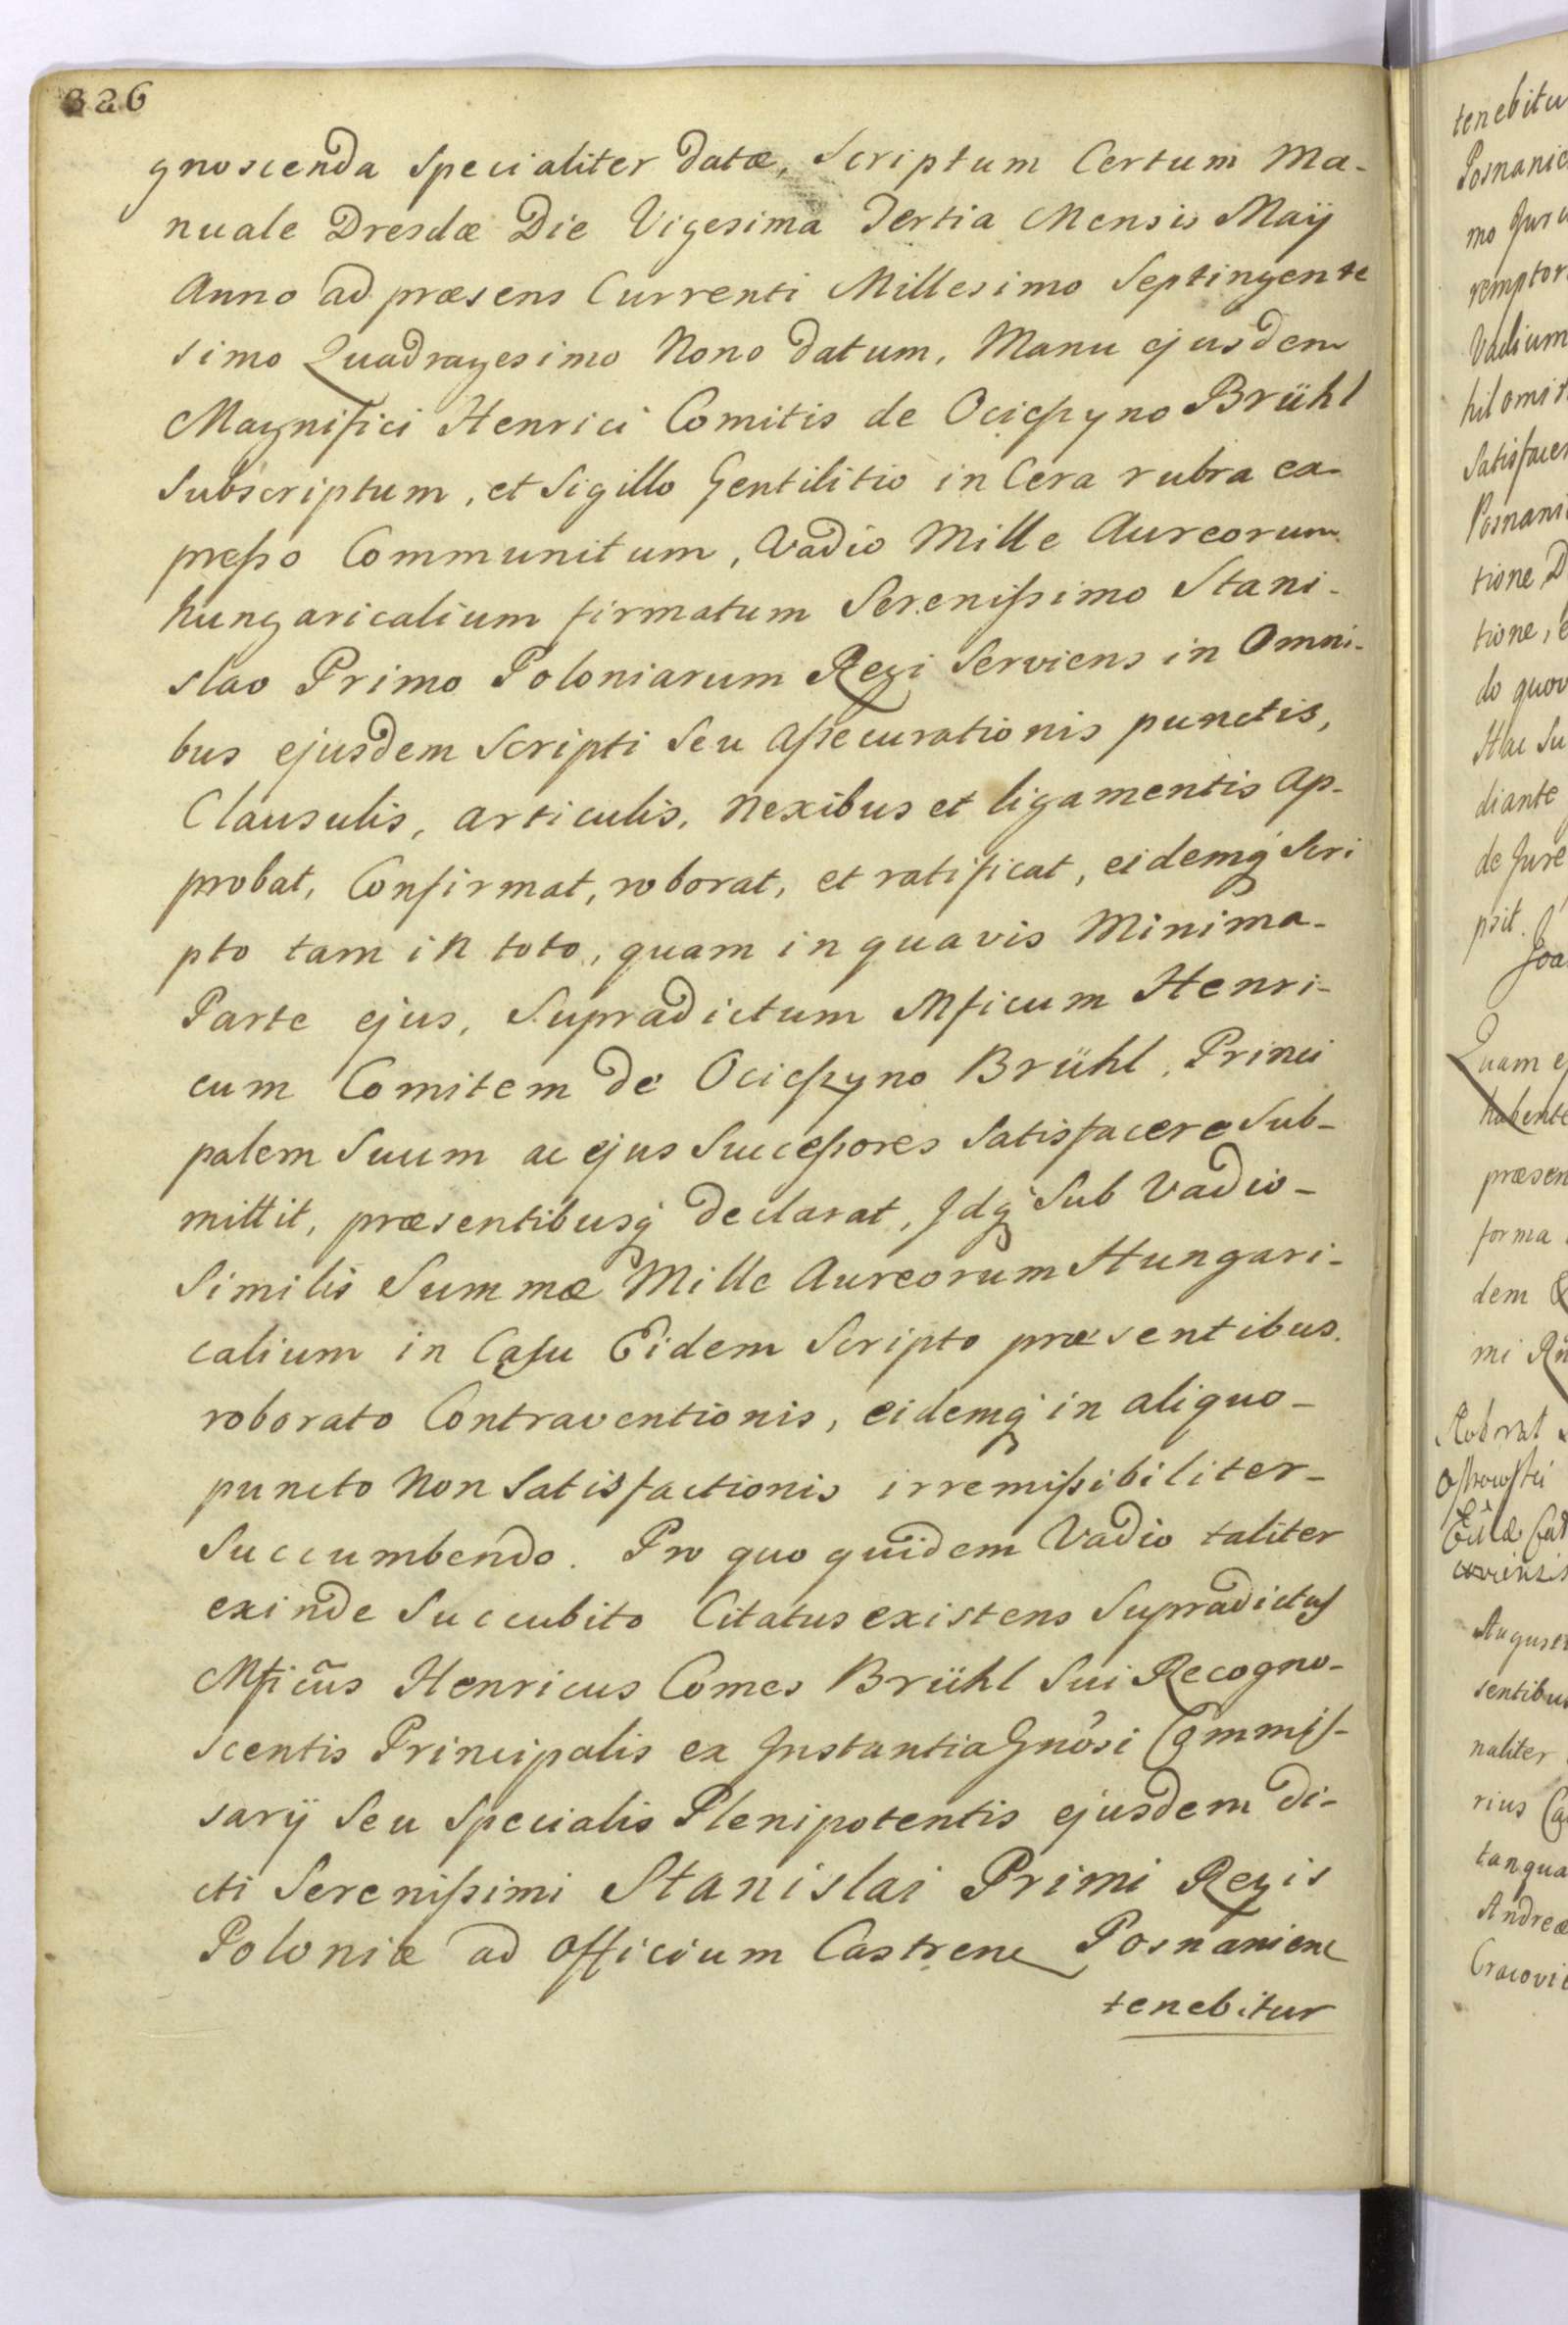 326
gnoscenda Specialiter datæ, Scriptum Certum Ma-
nuale Dresdæ Die Vigesima Tertia Mensis Maÿ
Anno ad præsens Currenti Millesimo Septingente
simo Quadragesimo Nono datum, Manu ejusdem
Magnifici Henrici Comitis de Ocieszyno Brühl
Subscriptum, et Sigillo Gentilitio in Cera rubra ex-
presso Communitum, Vadio Mille Aureorum
hungaricalium firmatum Serenissimo Stani-
slao Primo Poloniarum Regi Serviens in Omni-
bus ejusdem Scripti Seu Assecurationis punctis,
Clausulis, articulis, Nexibus et ligamentis Ap-
probat, Confirmat, roborat, et ratificat, eidemq Scri
pto tam in toto, quam in quavis Minima-
Parte ejus, Supradictum Mficum Henri-
cum Comitem de Ocieszyno Brühl, Princi
palem Suum ac ejus Successores Satisfacere Sub-
mittit, præsentibusq declarat, Idq Sub Vadio-
Similis Summæ Mille Aureorum Hungari-
calium in Casu Eidem Scripto præsentibus
roborato Contraventionis, eidemq in aliquo-
puncto Non Satisfactionis irremissibiliter-
Succumbendo. Pro quo quidem Vadio taliter
exinde Succubito Citatus existens Supradictus
Mficũs Henricus Comes Brühl Sui Recogno-
scentis Principalis ex Instantia Gnosi Commis-
sarÿ Seu Specialis Plenipotentis ejusdem di-
cti Serenissimi Stanislai Primi Regis
Poloniæ ad Officium Castrene Posnaniene
tenebitur
tenebitu
Posnanie
mo Juri
remptor
Vadium
hilomi
Satisfacer
Posnani
tione D
tione, e
do quov
Hac Su
diante
de Jure
psit.
Joa
Quam e
habente
præsen
forma
dem
mi
Roborat
August
sentibus
naliter
rius Ca
tanqua
Andreæ
Cracovie